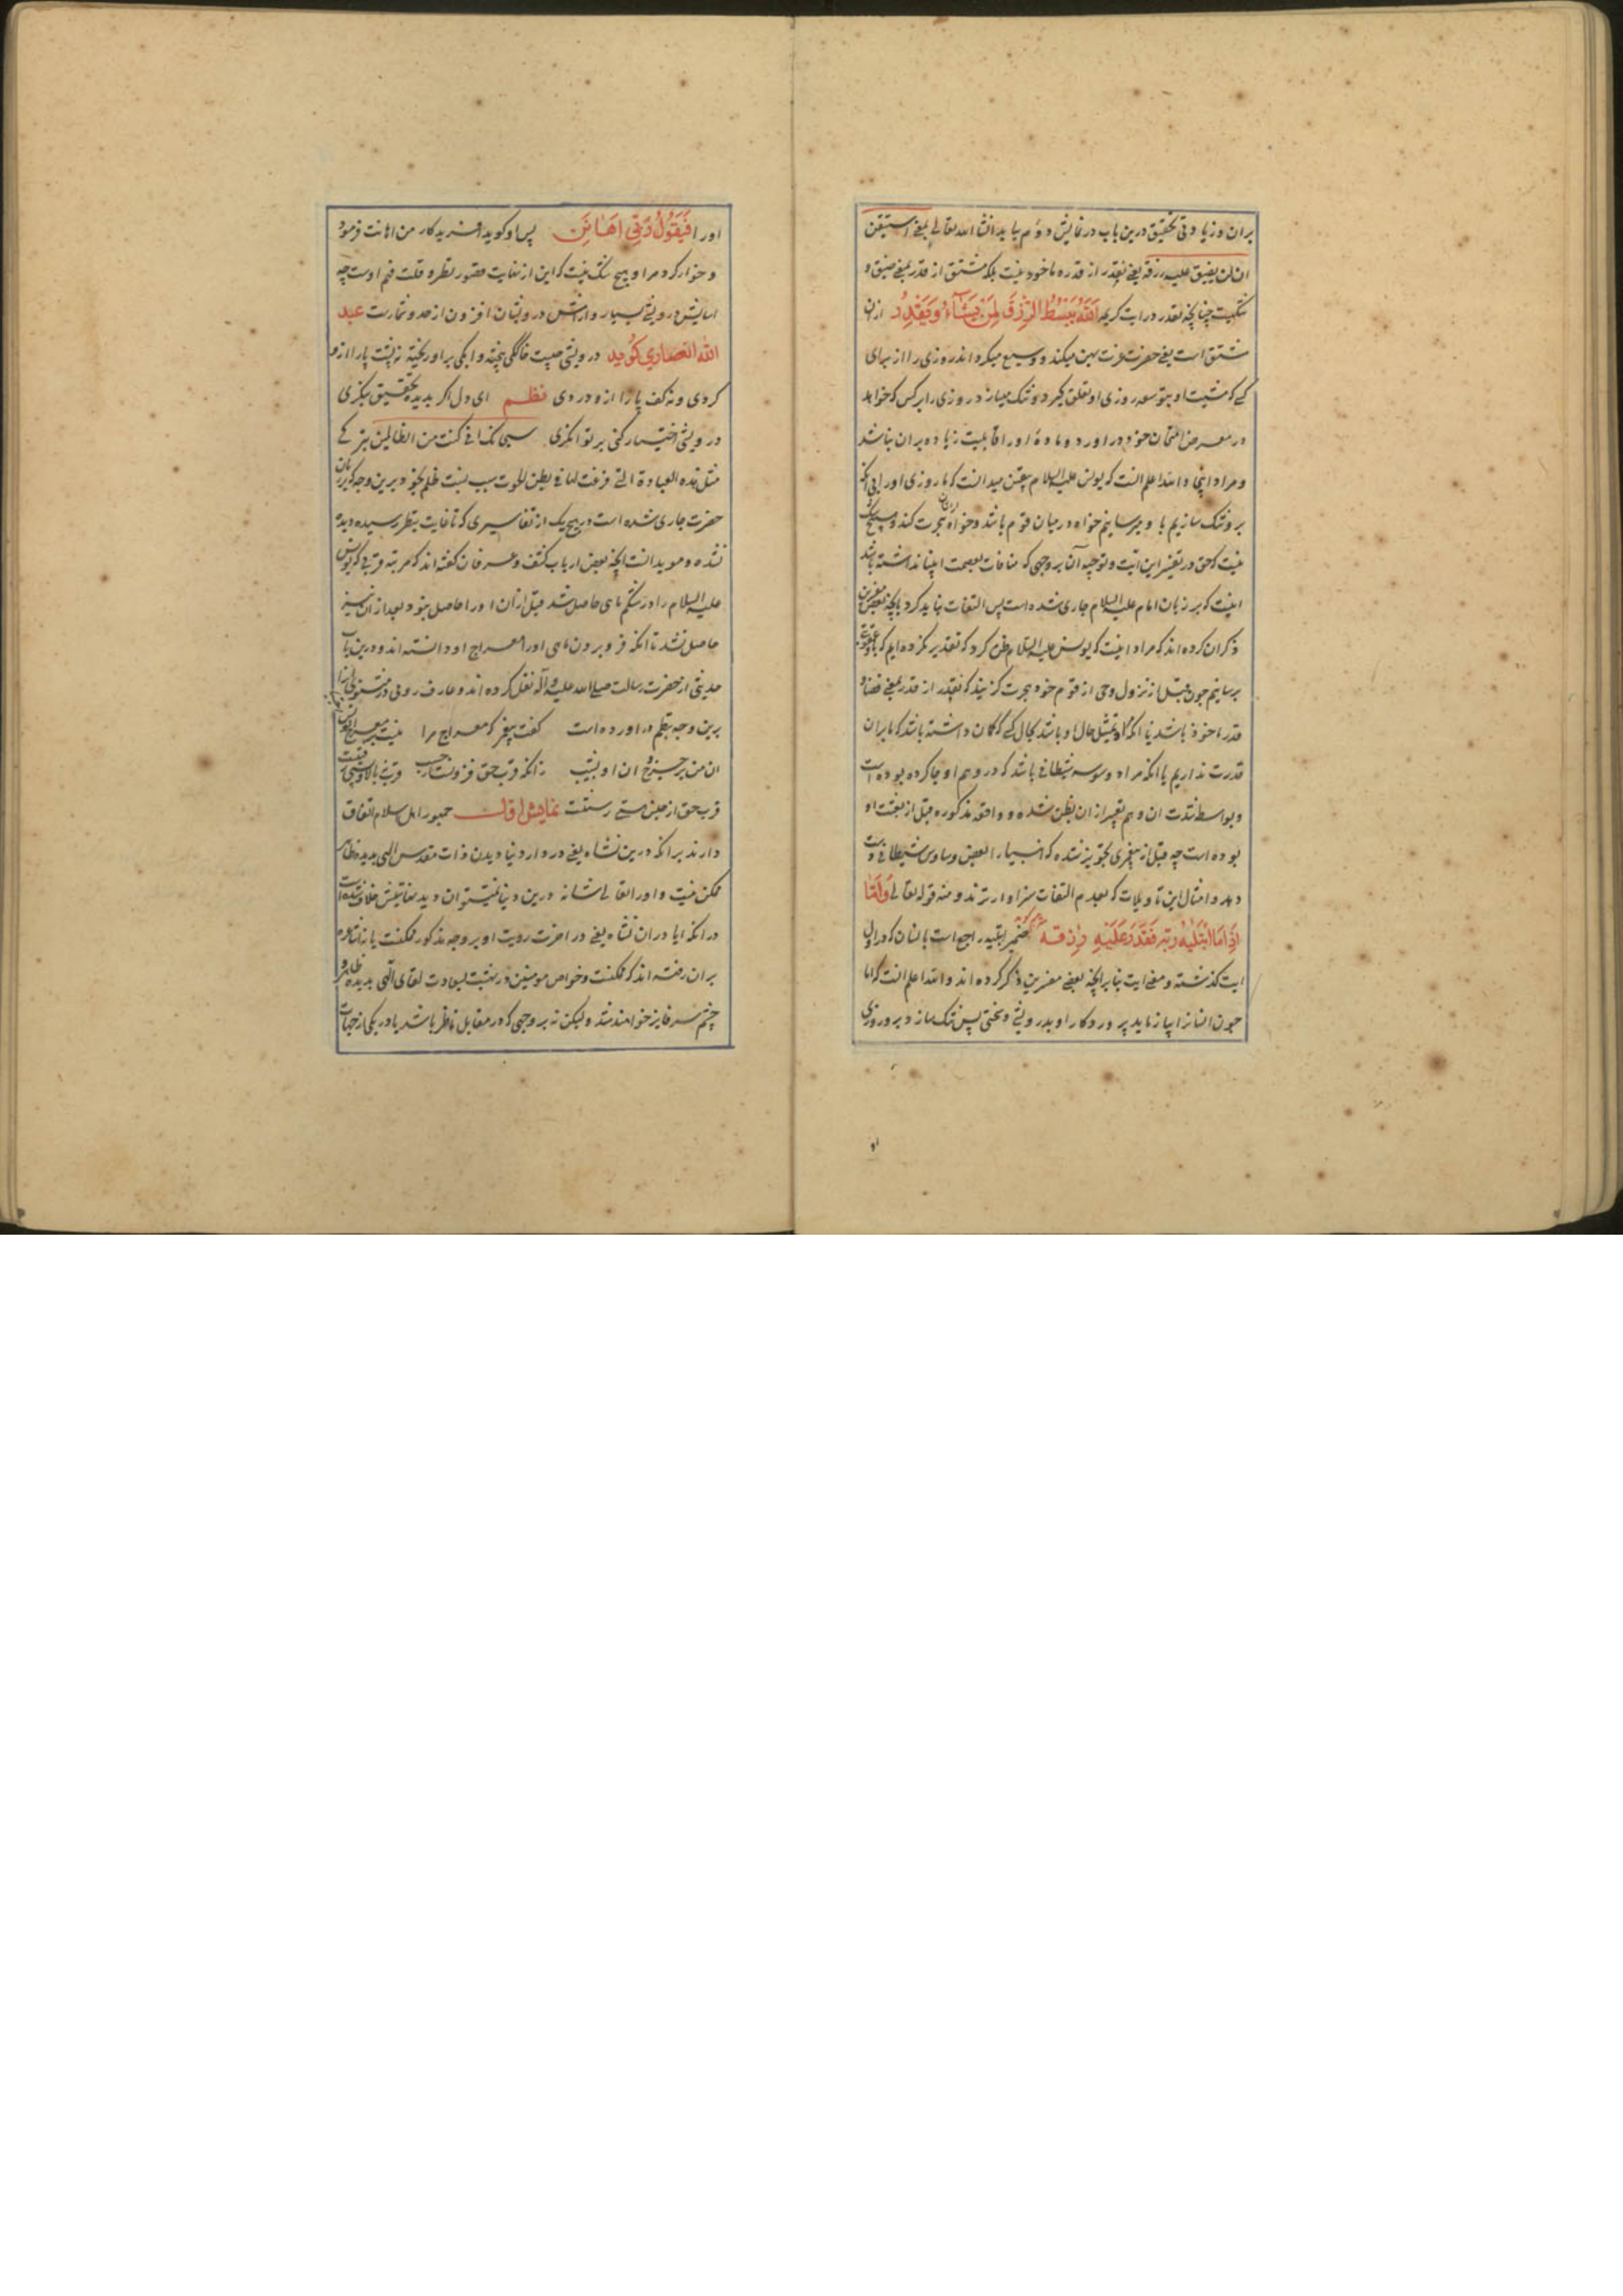 بران و زیادتی تحقیق درین باب در نمایش دوم بیاید انشا الله تعالی یعنی استیقن
ان لن یضیق علیه رزقه یعنی نقدر از قدره ماخوذ نیست بلکه مشتق از قدر بمعنی ضیق و
تنگیست چنانچه نقدر در ایت کریمه اَللهُ یَبْسُطُ الرِّزْقَ لِمَنْ یَشَآءُ وَیَقْدِرُ ازان
مشتق است یعنی حضرت عزت پهن میکند و وسیع میکرداند روزی را از برای
کسی که مشیت او بتوسعه روزی او تعلق گیرد و تنگ میسازد روزی را بر کس که خواهد
در معرض امتحان خود در اورد و ماده اورا قابلیت زیاده بران نباشد
و مراد اینجا والله اعلم انست که یونس علیه السلام یقین میدانست که ما روزی اورا بی انکه
برو تنگ سازیم باو میرسانیم خواه در میان قوم باشد و خواه ازیشان هجرت کند و هیچ شک
نیست که حق در تفسیر این ایت و توجیه آن بروجهی که منافات بعصمت انبیا نداشته باشد
اینست که بر زبان امام علیه السلام جاری شده است پس التفات نباید کرد بانچه بعضی مفسرین
ذکر ان کرده اند که مراد اینست که یونس علیه السلام ظن کرد که تقدیر نکرده ایم که باو عقوبت
برسانیم چون قبل از نزول وحی از قوم خود هجرت کزیند که نقدر از قدر بمعنی قضا و
قدر ماخوذ باشد یا انکه تمثیل حال او باشد بحال کسی که کمان داشته باشد که ما بران
قدرت نداریم یا انکه مراد وسوسه شیطانی باشد که در وهم او جا کرده بوده است
و بواسطه شدت ان وهم تعبیر از ان بظن شده و واقعه مذکوره قبل از بعثت او
بوده است چه قبل از پیغمبری تجویز نشده که انبیا را بعضی وساوس شیطانی دست
دهد و امثال این تاویلات که بعدم التفات سزاوارترند و منه قوله تعالی وَاَمَّا
اِذَا مَا ابْتَلٰیهُ رَبُّه فَقَدَرَ عَلَیْهِ رِزْقَهُ ضمیر ابتلیه راجع است بانسان که در اول
ایت کذشته و معنی ایت بنابر انچه بعضی مفسرین ذکر کرده اند والله اعلم انست که اما
چون انسانرا بیازماید پروردکار او بدرویشی و سختی پس تنک سازد برو روزی
او
اورا فَیَقُولُ رَبِّی اَهَانَنِ پس او کوید افریدکار من اهانت فرمود
و خوار کرد مرا و هیچ شک نیست که این از غایت قصور نظر و قلت فهم اوست چه
اسایش درویشی بسیار و ارامش درویشان افزون از حد و شمارست عبد
الله انصاری کوید درویشی چیست خاککی بیخته و ابکی بر او ریخته نه پشت پا را ازو
کردی و نه کف پا را ازو دردی نظم ای دل اکر بدیده تحقیق بنکری
درویشی اختیار کنی بر توانکری سبحانک انی کنت من الظالمین بترکی
مثل هذه العبادة التی فرغت لها فی بطن الحوت سبب نسبت ظلم بخود برین وجه که بر زبان
حضرت جاری شده است در هیچ یک از تفاسیری که تا غایت بنظر رسیده دیده
نشده و موید انست انچه بعضی ارباب کشف و عرفان کفته اند که مرتبه قربی که یونس
علیه السلام را در شکم ماهی حاصل شد قبل از ان اورا حاصل نبود و بعد از ان نیز
حاصل نشد تا انکه فرو بردن ماهی اورا معراج او دانسته اند و درین باب
حدیثی از حضرت رسالت صلی الله علیه و آله نقل کرده اند و عارف رومی در مثنوی انرا
برین وجه بنظم در اورده است کفت پیغمبر که معراج مرا نیست بر معراج یونس اجتبا
ان من بر چرخ و ان او بنشیب زانکه قرب حق فزونست از حسیب قرب نه بالا و پستی رفتنست
قرب حق از حبس هستی رستنست نمایش اول جمهور اهل اسلام اتفاق
دارند برانکه درین نشاه یعنی در دار دنیا دیدن ذات مقدس الهی بدیده ظاهر
ممکن نیست و اورا تعالی شانه درین دنیا نمیتوان دید بعیانش خلاف شده است
درانکه ایا دران نشاه یعنی در اخرت رویت او بر وجه مذکور ممکنست یا نه اشاعره
بران رفته اند که ممکنست و خواص مومنین در بهشت بسعادت لقای الهی بدیده ظاهر و
چشم سر فایز خواهند شد ولیکن نه بر وجهی که در مقابل ناظر باشد یا در یکی از جهات